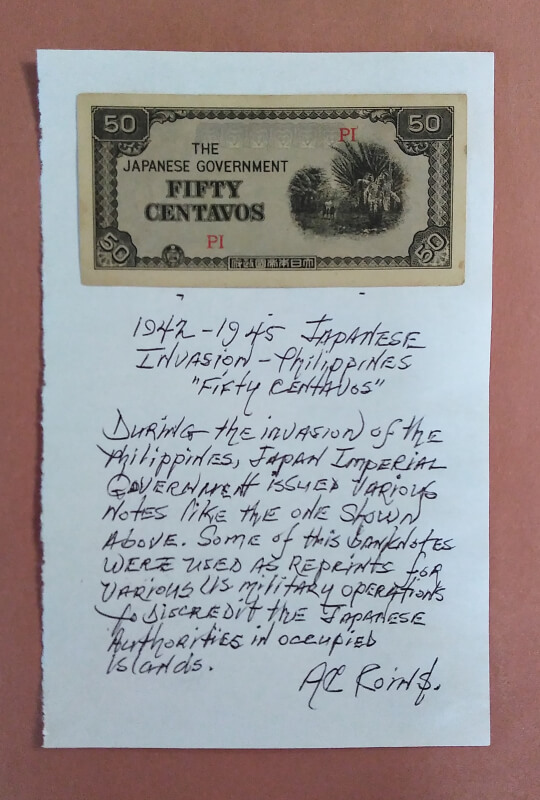 50
50
PI
THE
JAPANESE GOVERNMENT
FIFTY
CENTAVOS
PI
50
50
1942-1945 JAPANESE
INVASION - Philippines
"Fifty CENTAVOS"
DURING the invasion of the
Philippines, JAPAN IMPERIAL
GOVERNMENT issued VARIOUS
Notes like the one Shown
Above. Some of this banknotes
WERE USED AS REPRINTS for
VARIOUS US military operations
to DISCREDIT the JAPANESE
Authorities in occupied
Islands.